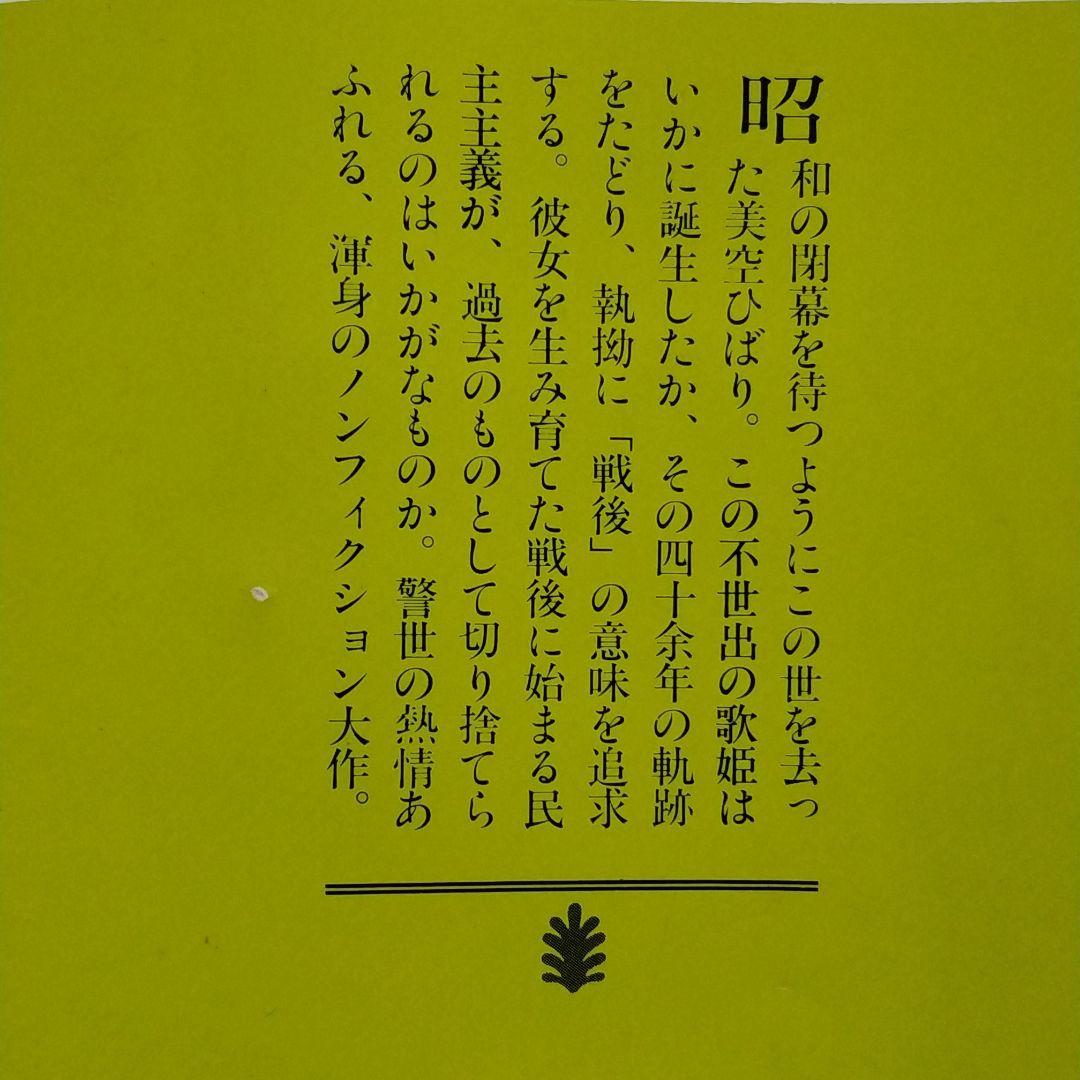 昭和の閉幕を待つようにこの世を去っ
た美空ひばり。この不世出の歌姫は
いかに誕生したか、その四十余年の軌跡
をたどり、執拗に「戦後」の意味を追求
する。彼女を生み育てた戦後に始まる民
主主義が、過去のものとして切り捨てら
れるのはいかがなものか。警世の熱情あ
ふれる、渾身のノンフィクション大作。